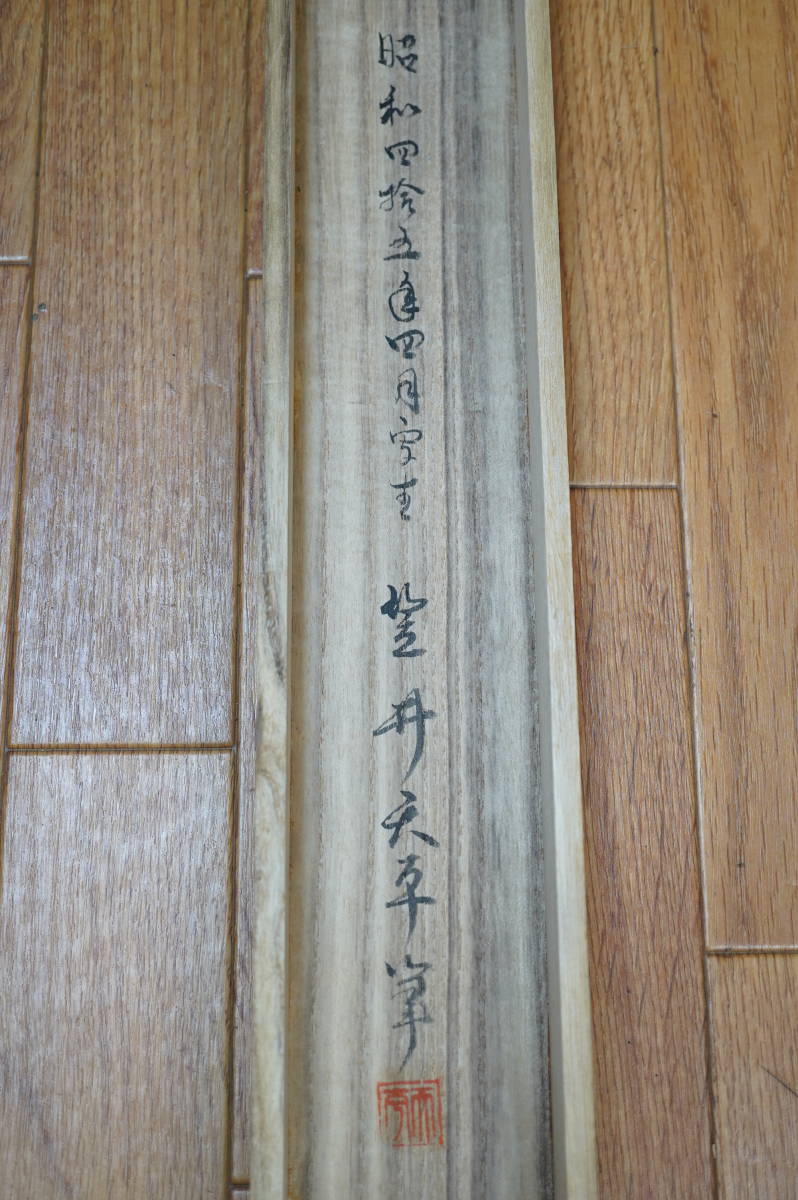 昭和四拾五年四月写生 笠井天草筆
天草